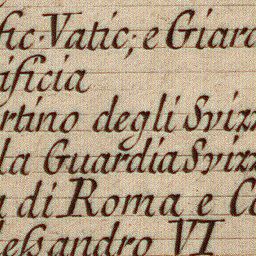 fic. Vatic; e Giard
ificia
rtino degli Svizz
la Guardia Svizz
a di Roma e Ca
lessandro VI